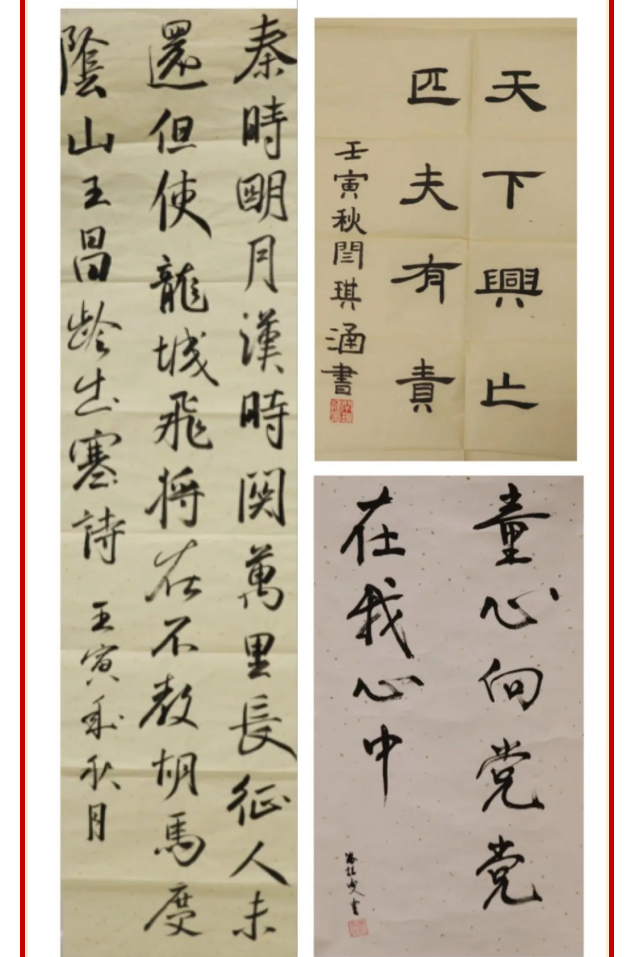 秦時明月漢時関萬里長征人未
還但使龍城飛将在不教胡馬度
陰山王昌齡出塞詩 壬寅年秋月
天下興亡
匹夫有責
壬寅秋閆琪涵書
童心向党党
在我心中